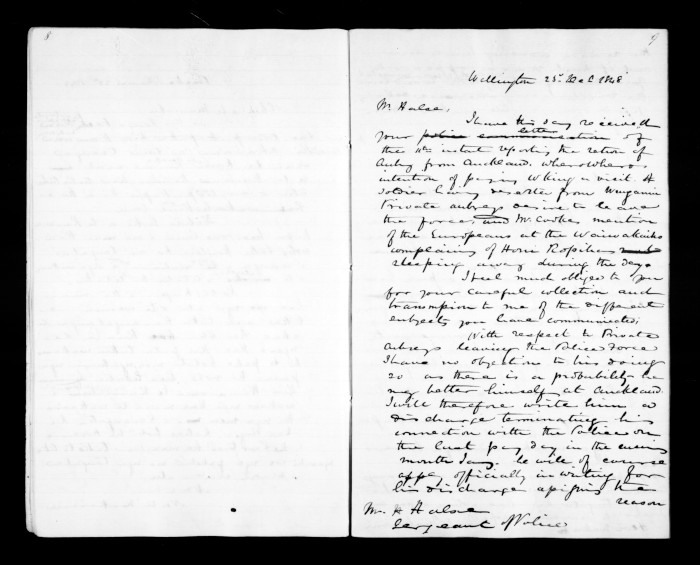 8
9
Wellington 23rd Dec 1848
Mr Halse,
I have this day received
your police communication letter of
the 11th instant reporting the return of
Aubrey from Auckland.
intention of paying Wking a visit. A
soldier having deserted from Wanganui
Private Aubreys desire to leave
the force; and Mr Cookes mention
of the Europeans at the Waiwakaiho
complaining of Honi Ropihas
sleeping away during the day.
I feel much obliged to you
for your careful collection and
transmission to me of the different
subjects you have communicated;
With respect to Private
Aubreys leaving the Police Force
I have no objection to his doing
so as there is a probability he
may better himself at Auckland.
I will therefore write him a
discharge terminating his
connection with the Police on
the last pay day in the
month Jany. he will of course
apply officially in writing for
his discharge assigning the
reason
Mr H Halse
Sergeant of Police